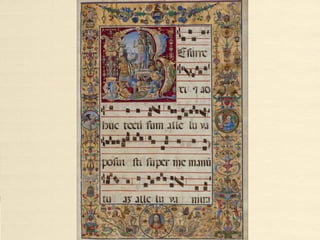 REsurre
xi ⁊ ad
huc tecũ sum alle lu ya
posui sti super me manũ
tu aʒ alle lu ya mira